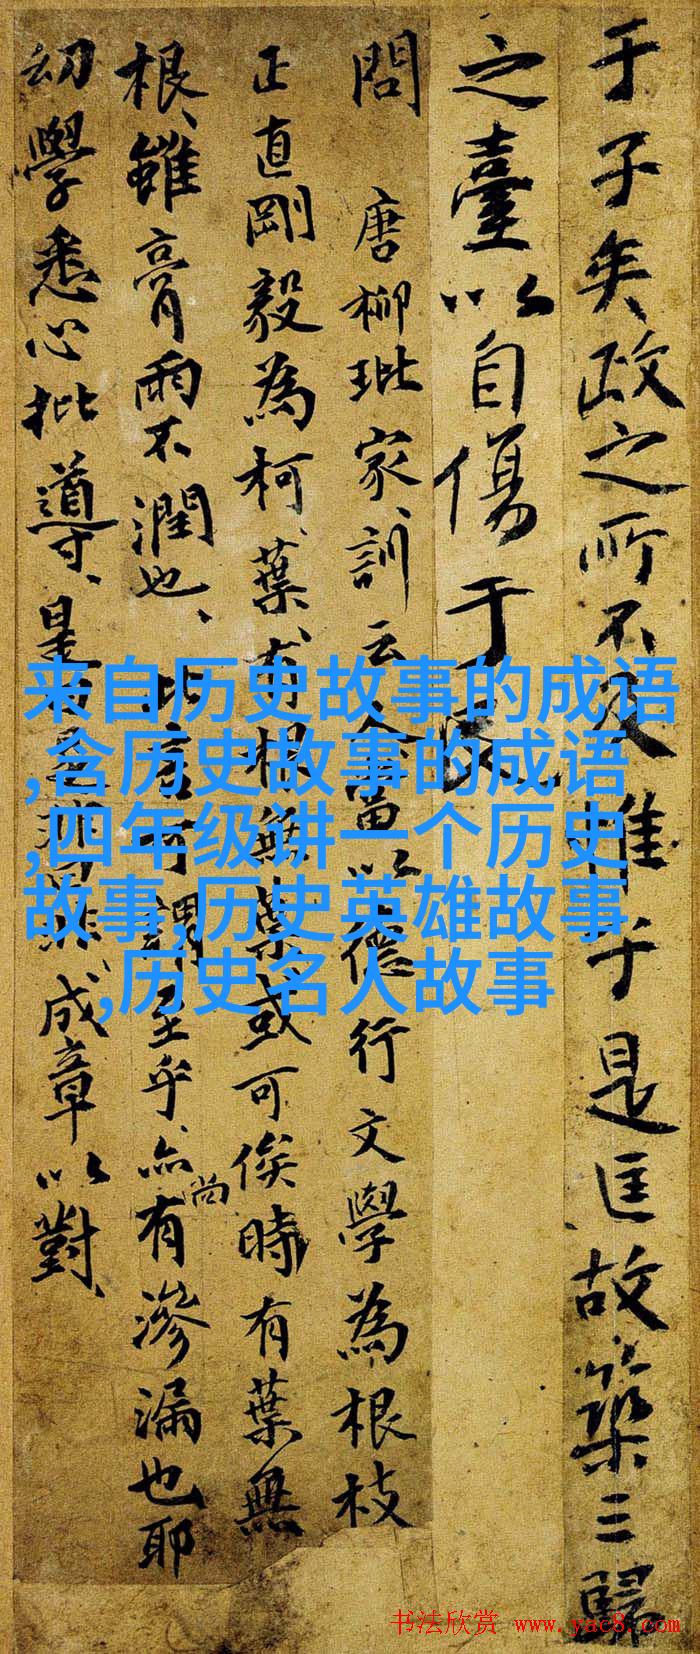 于子矣政之所不及惟于是匡故築三歸
之臺以自傷于民
問 唐柳玭家訓云人當以德行文學為根枝
正直剛毅為柯、葉、有根無葉或可俟時有葉無
根、雖膏雨不潤也、此言可謂至乎、亦尚有滲漏也耶
幼學悉心批導、是 成章以對、
来自历史故事的成语
,含历史故事的成语
,四年级讲一个历史
故事,历史英雄故事
,历史名人故事
书法欣赏 www.yac8.com